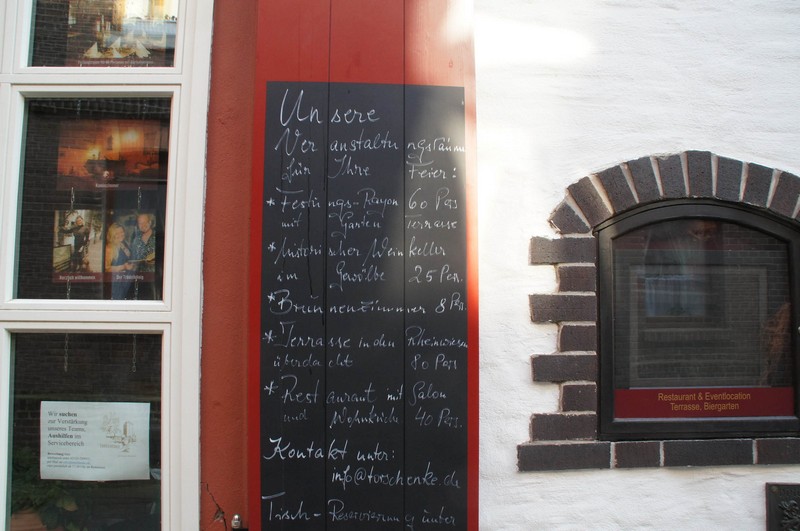 Unsere
Veranstaltungsräume
für Ihre Feier:
* Festungs-Rayon 60 Pers
mit Garten Terrasse
* historischer Weinkeller
im Gewölbe 25 Per.
* Brunnenzimmer 8 Per.
* Terrasse in den Rheinwiesen
überdacht 80 Pers
* Restaurant mit Salon
und Wohnküche 40 Pers.
Kontakt unter:
info@torschenke.de
Tisch-Reservierung unter
Wir suchen
zur Verstärkung
unseres Teams,
Aushilfen im
Servicebereich
Herzlich willkommen
Restaurant & Eventlocation
Terrasse, Biergarten